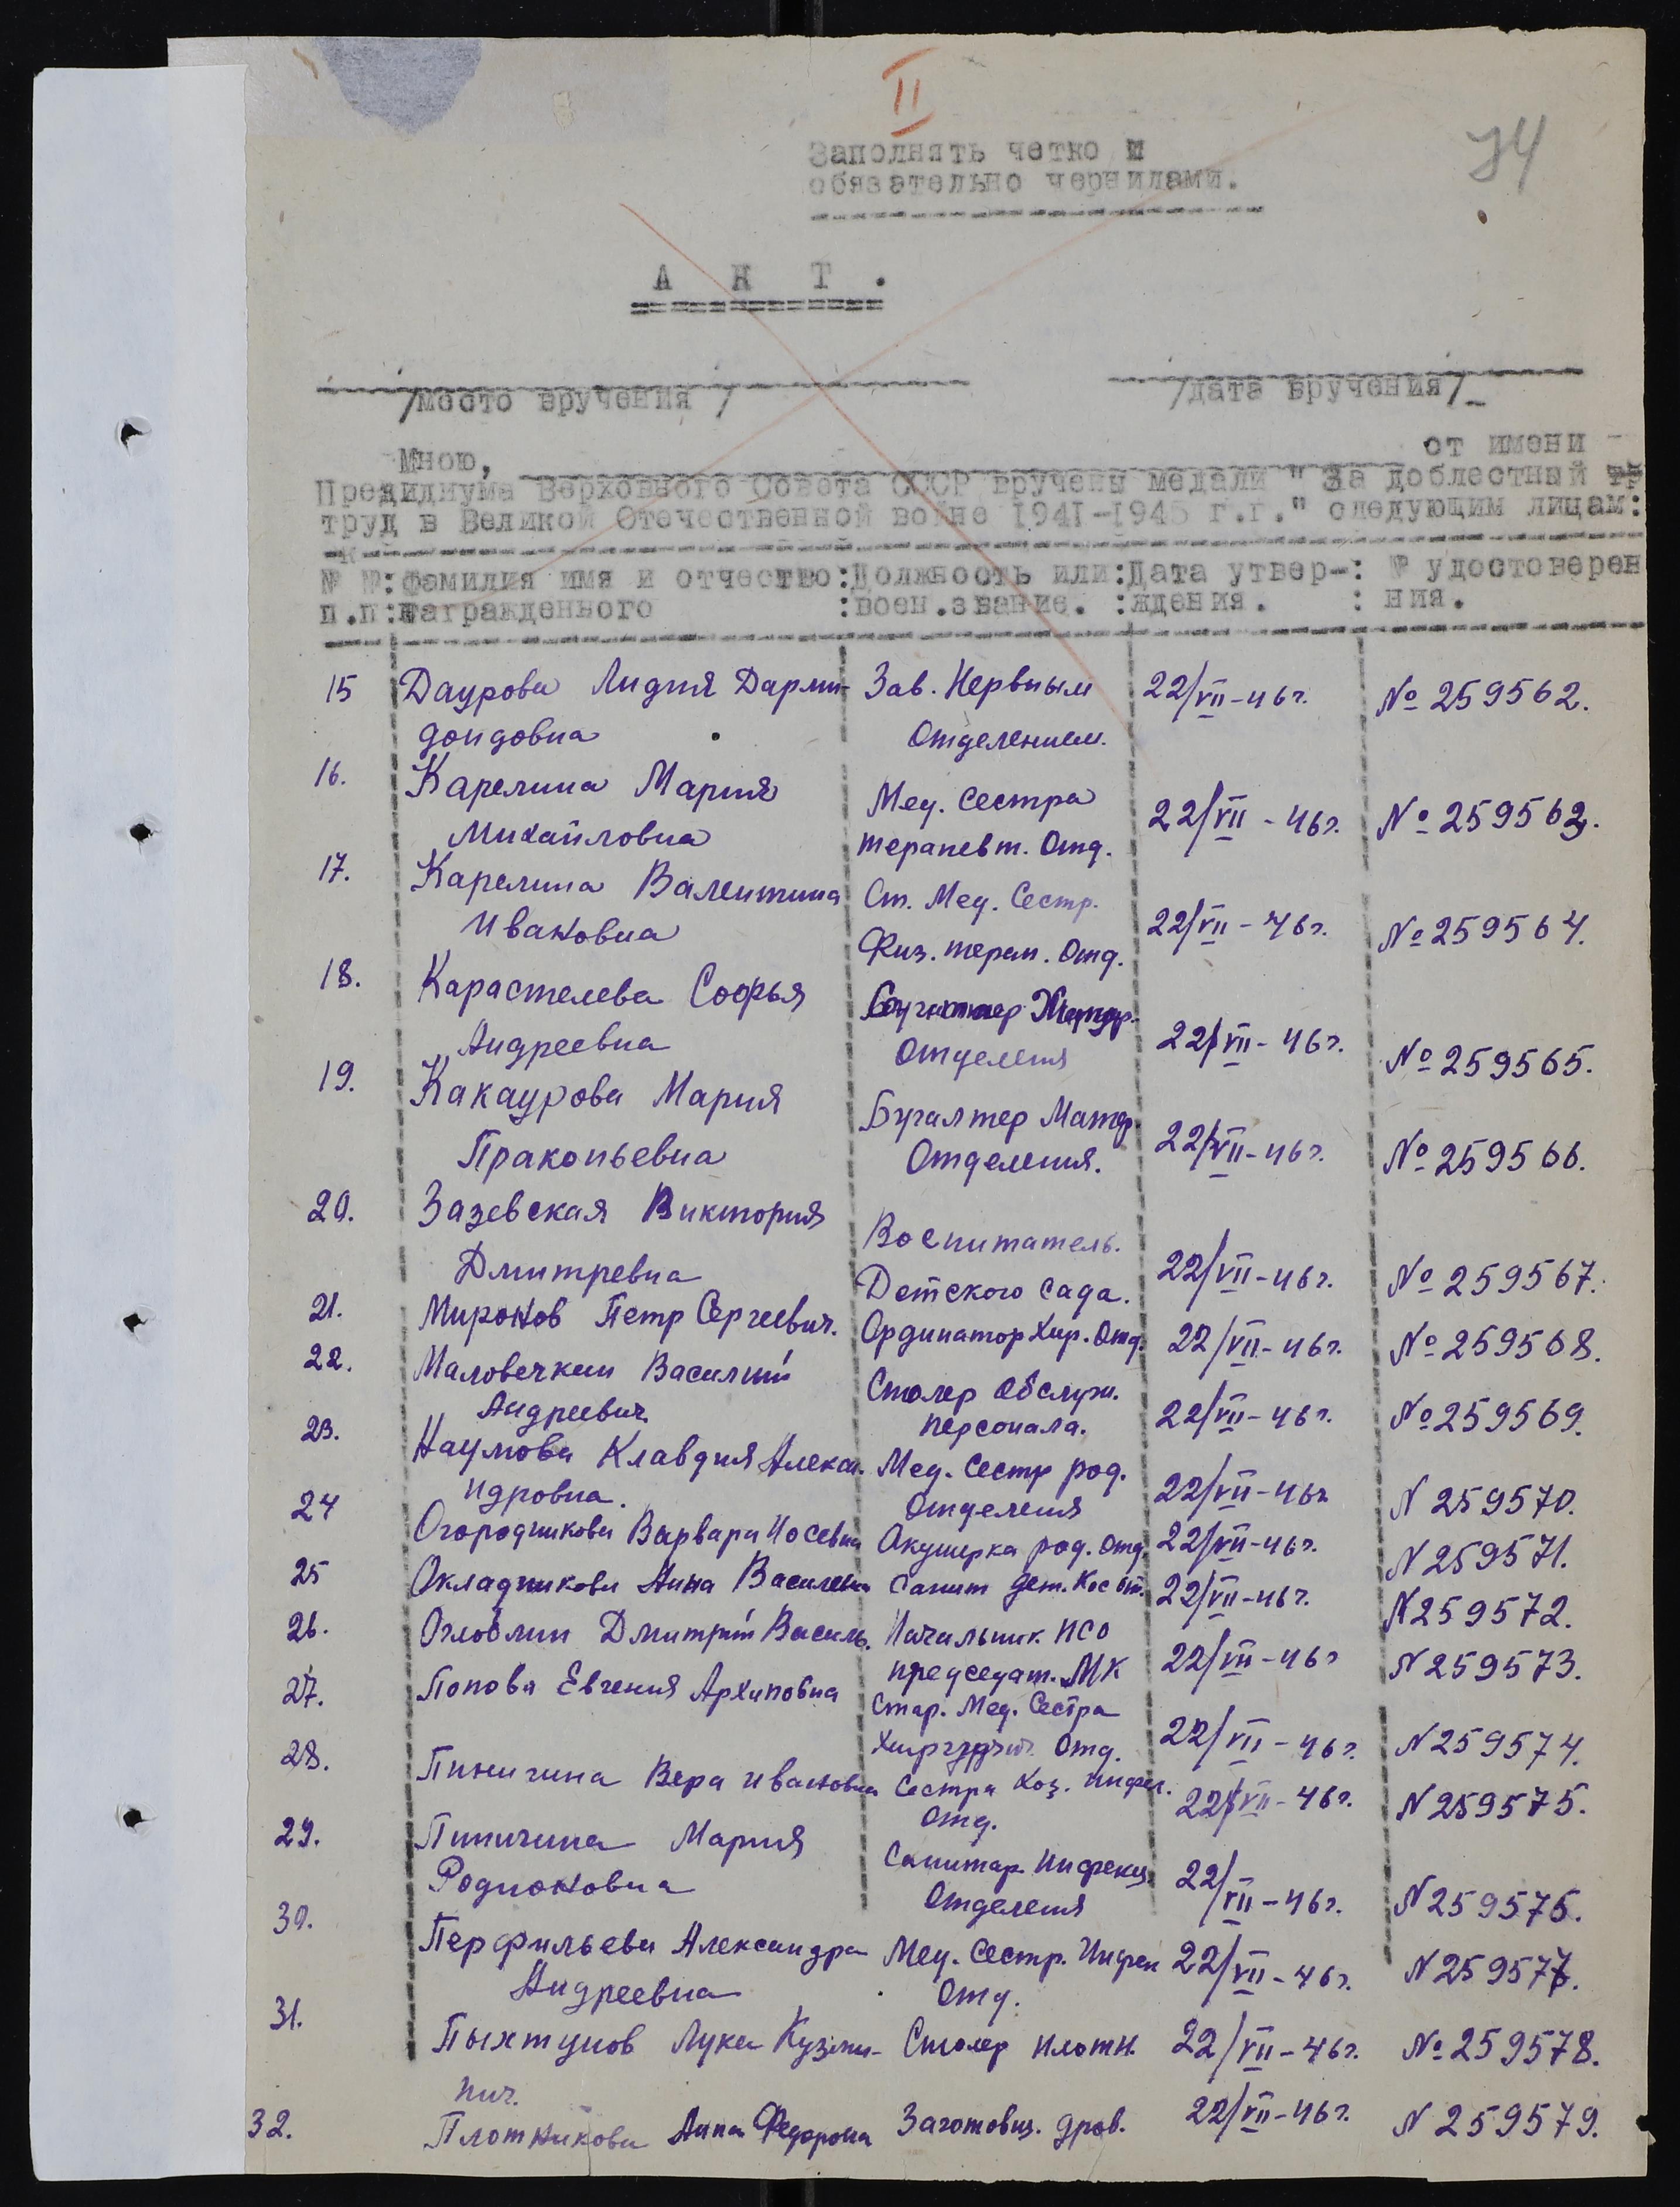 II
74
Заполнять четко и
обязательно чернилами.
А К Т .
/место вручения /
/дата вручения/
Мною, от имени
Президиума Верховного Совета СССР вручены медали " За доблестный тр
труд в Великой Отечественной войне 1941-1945 г.г." следующим лицам:
№ №:фамилия имя и отчество:Должность или:Дата утвер-: № удостоверен
п.п:награжденного :воен.звание. :ждения. : ния.
15 Даурова Лидия Дарми- Зав. Нервным 22/VII-46г. № 259562.
дондовна Отделением.
16. Карелина Мария Мед. Сестра 22/VII-46г. № 259563.
Михайловна терапевт. Отд.
17. Карелина Валентина Ст. Мед. Сестр. 22/VII-46г. № 259564.
Ивановна Физ. терап. Отд.
18. Карастелева Софья 22/VII-46г. № 259565.
Андреевна Отделения
19. Какаурова Мария Бугалтер Матер. 22/VII-46г. № 259566.
Пракопьевна Отделения.
20. Зазевская Виктория Воспитатель. 22/VII-46г. № 259567.
Дмитревна Детского сада.
21. Миронов Петр Сергеевич. Ординатор Хир. Отд. 22/VII-46г. № 259568.
22. Маловечкин Василий Столер Обслуж. 22/VII-46г. № 259569.
Андреевич персонала.
23. Наумова Клавдия Алекса- Мед. Сестр род. 22/VII-46г. N 259570.
ндровна. Отделения
24 Огородникова Варвара Иосевна Акушерка род. Отд. 22/VII-46г. N 259571.
25 Окладникова Анна Василевна Санит дет. Кос от. 22/VII-46г. N 259572.
26. Оглоблин Дмитрий Василь. Начальник ПСО 22/VII-46г N 259573.
председат. МК
27. Попова Евгения Архиповна Стар. Мед. Сестра 22/VII-46г. N 259574.
Хирургич. Отд.
28. Пинигина Вера Ивановна Сестра Хоз. Инфек. 22/VII-46г. N 259575.
Отд.
29. Пинигина Мария Санитар. Инфекц. 22/VII-46г. N 259576.
Родионовна Отделения
30. Перфильева Александра Мед. Сестр. Инфек 22/VII-46г. N 259577.
Андреевна Отд.
31. Пыхтунов Лука Кузми- Столер плотн. 22/VII-46г. № 259578.
нич.
32. Плотникова Анна Федоровна Заготовщ. дров. 22/VII-46г. N 259579.